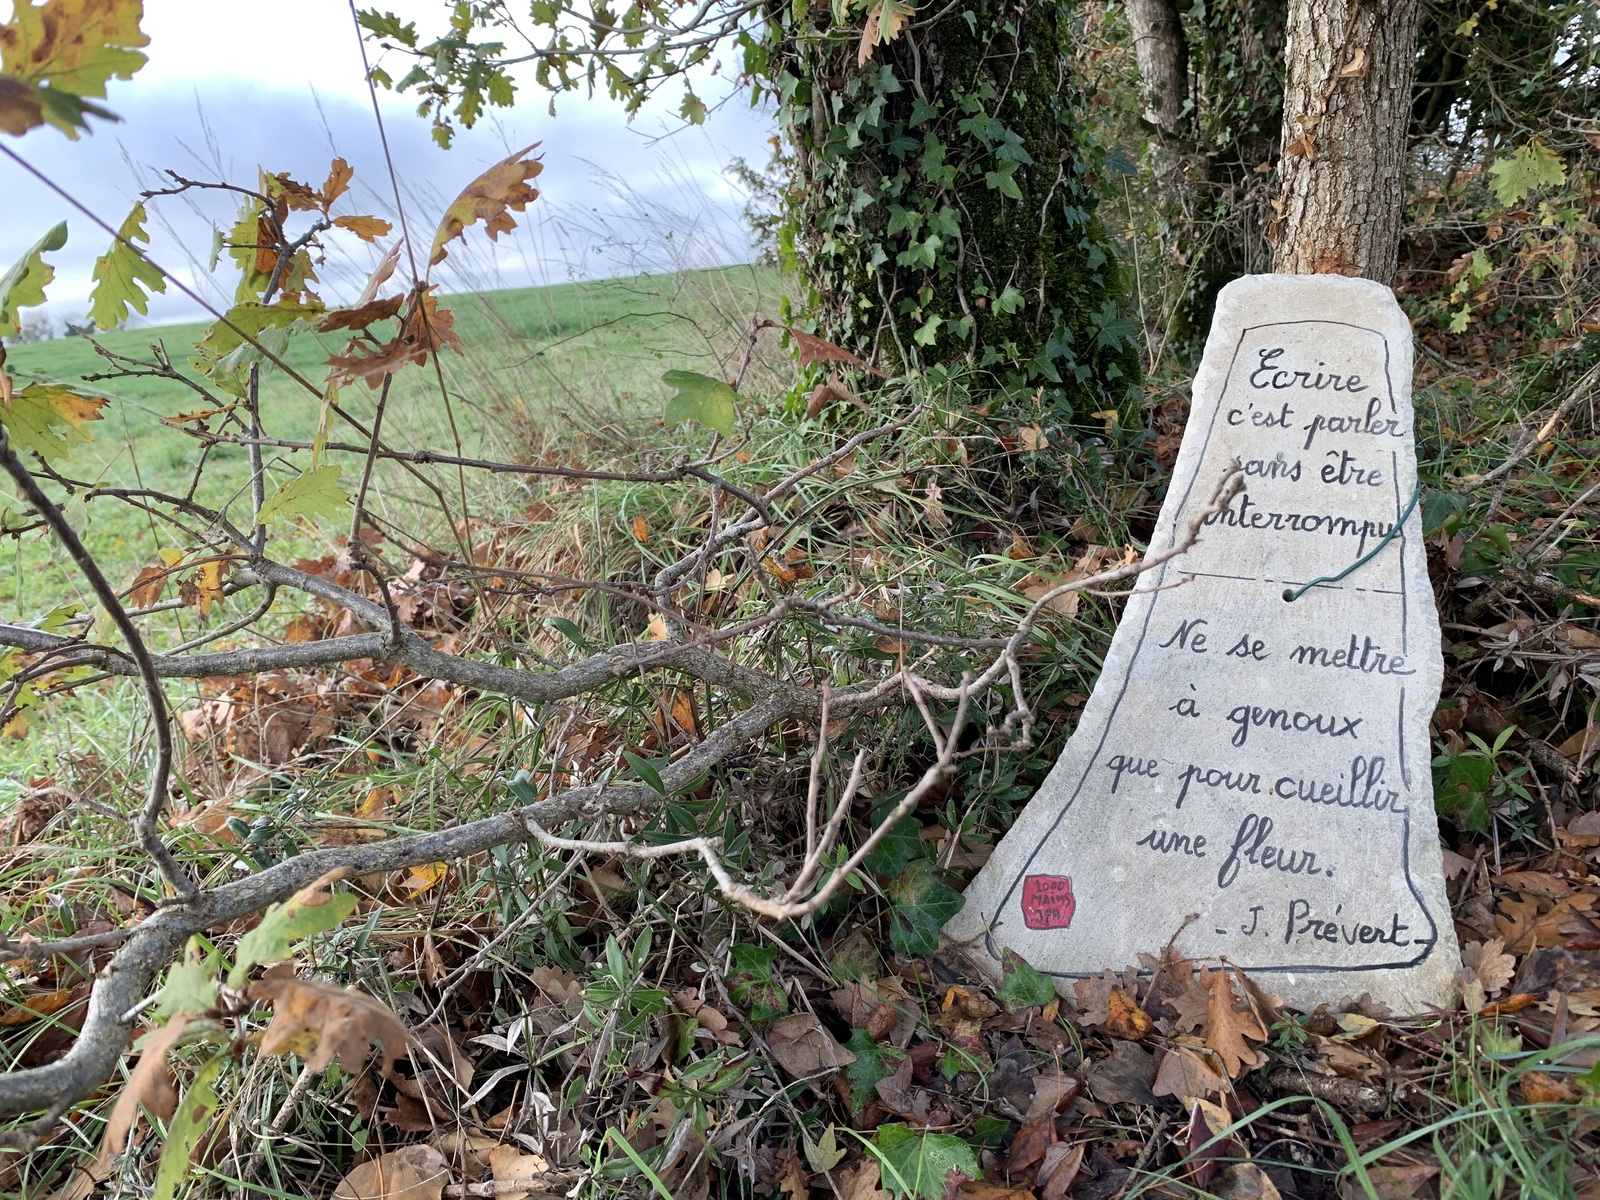 Ecrire
c'est parler
sans être
interrompu
Ne se mettre
à genoux
que pour cueillir
une fleur.
- J. Prévert -
1000
MAINS
JPA